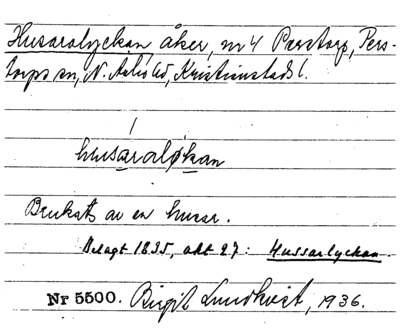 Husaralyckan åker, nr 4 Perstorp, Pers-
torps sn, N. Åsbo hd, Kristianstads l.
husaraløkan
Brukats av en husar.
Belagt 1835, akt 27: Hussarlyckan.
Nr 5500. Birgit Lundkvist, 1936.